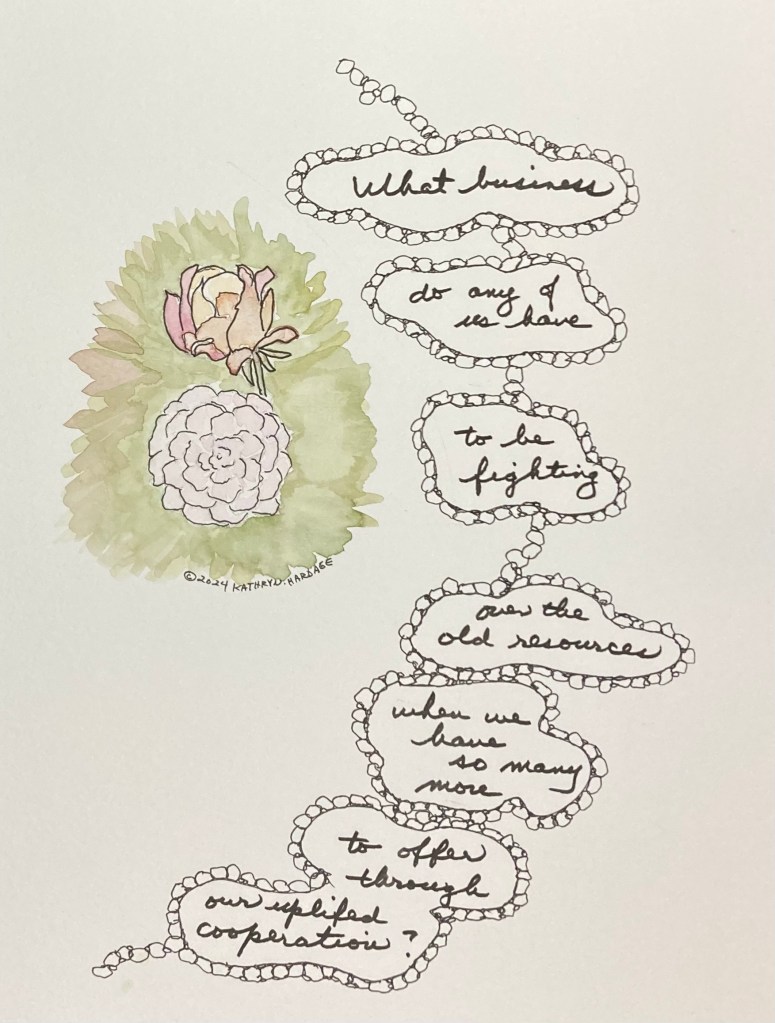 What business
do any of
us have
to be
fighting
over the
old resources
when we
have
so many
more
to offer
through
our uplifed
cooperation?
©2024 KATHRYD.HARDAGE